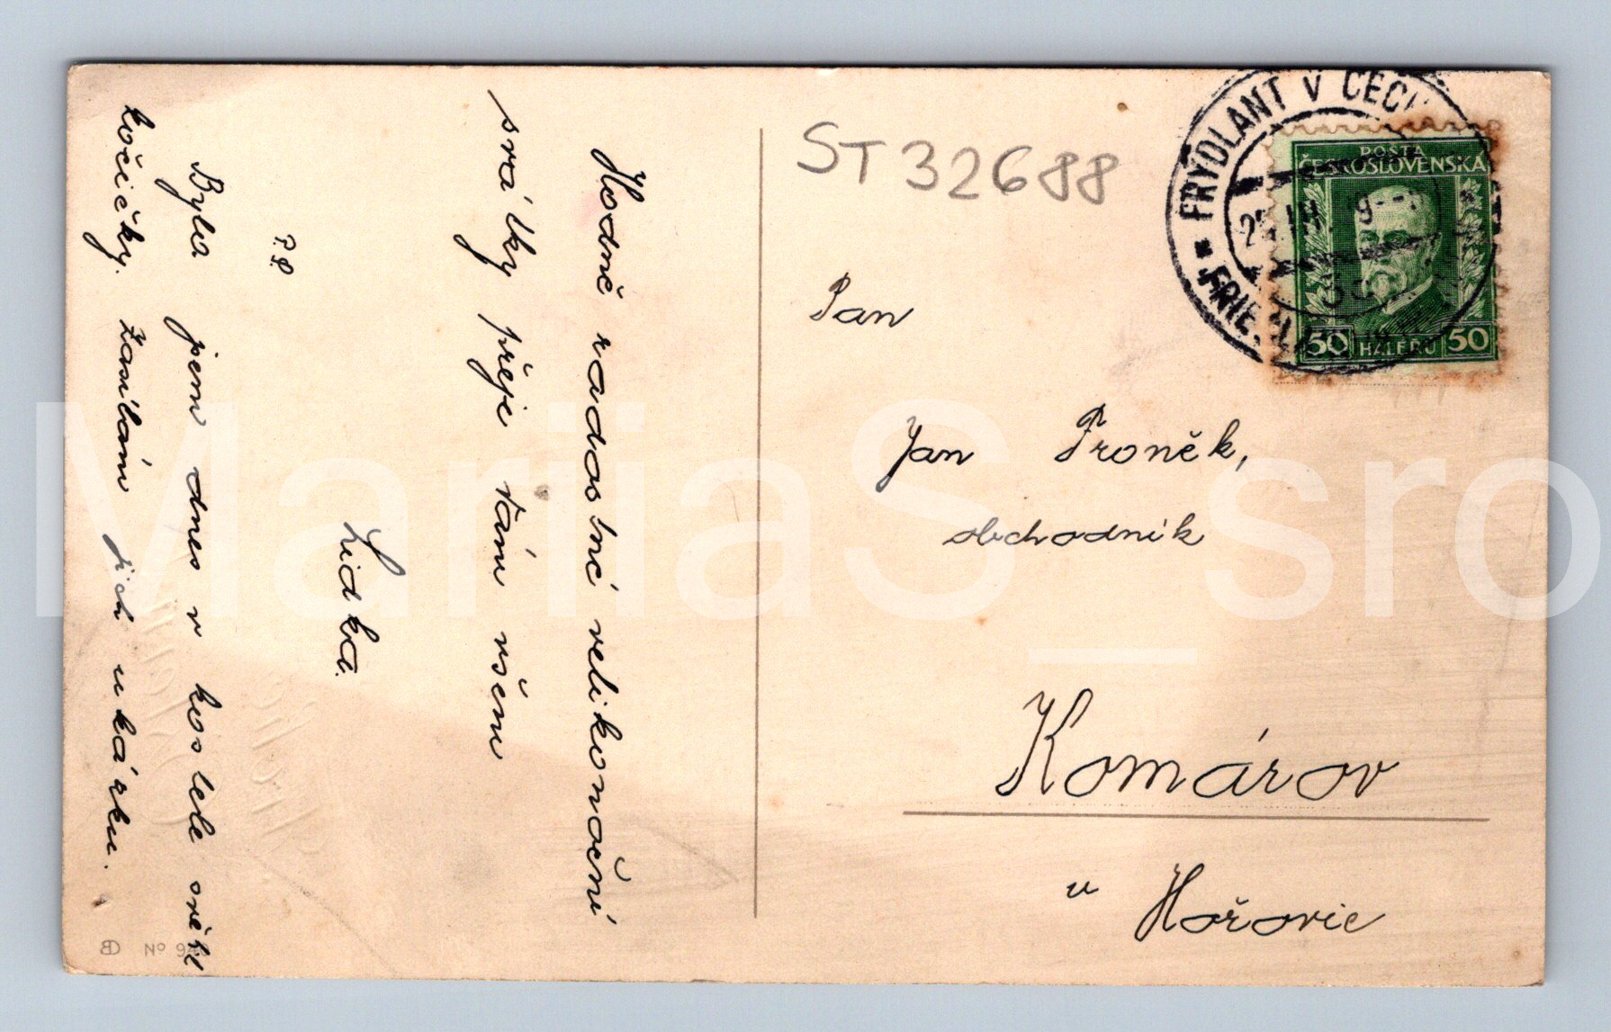 Hodně radostné velikonoční
svátky přeje Vám všem
Lidka.
P.S.
Byla jsem dnes v kostele světit
kočičky. Zasílám jich ukázku.
BD No
ST 32688
FRÝDLANT V ČECH
25
POŠTA
ČESKOSLOVENSKÁ
50 HALÉŘŮ 50
Pan
Jan Proněk,
obchodník
Komárov
u Hořovic
MariiaS_sro